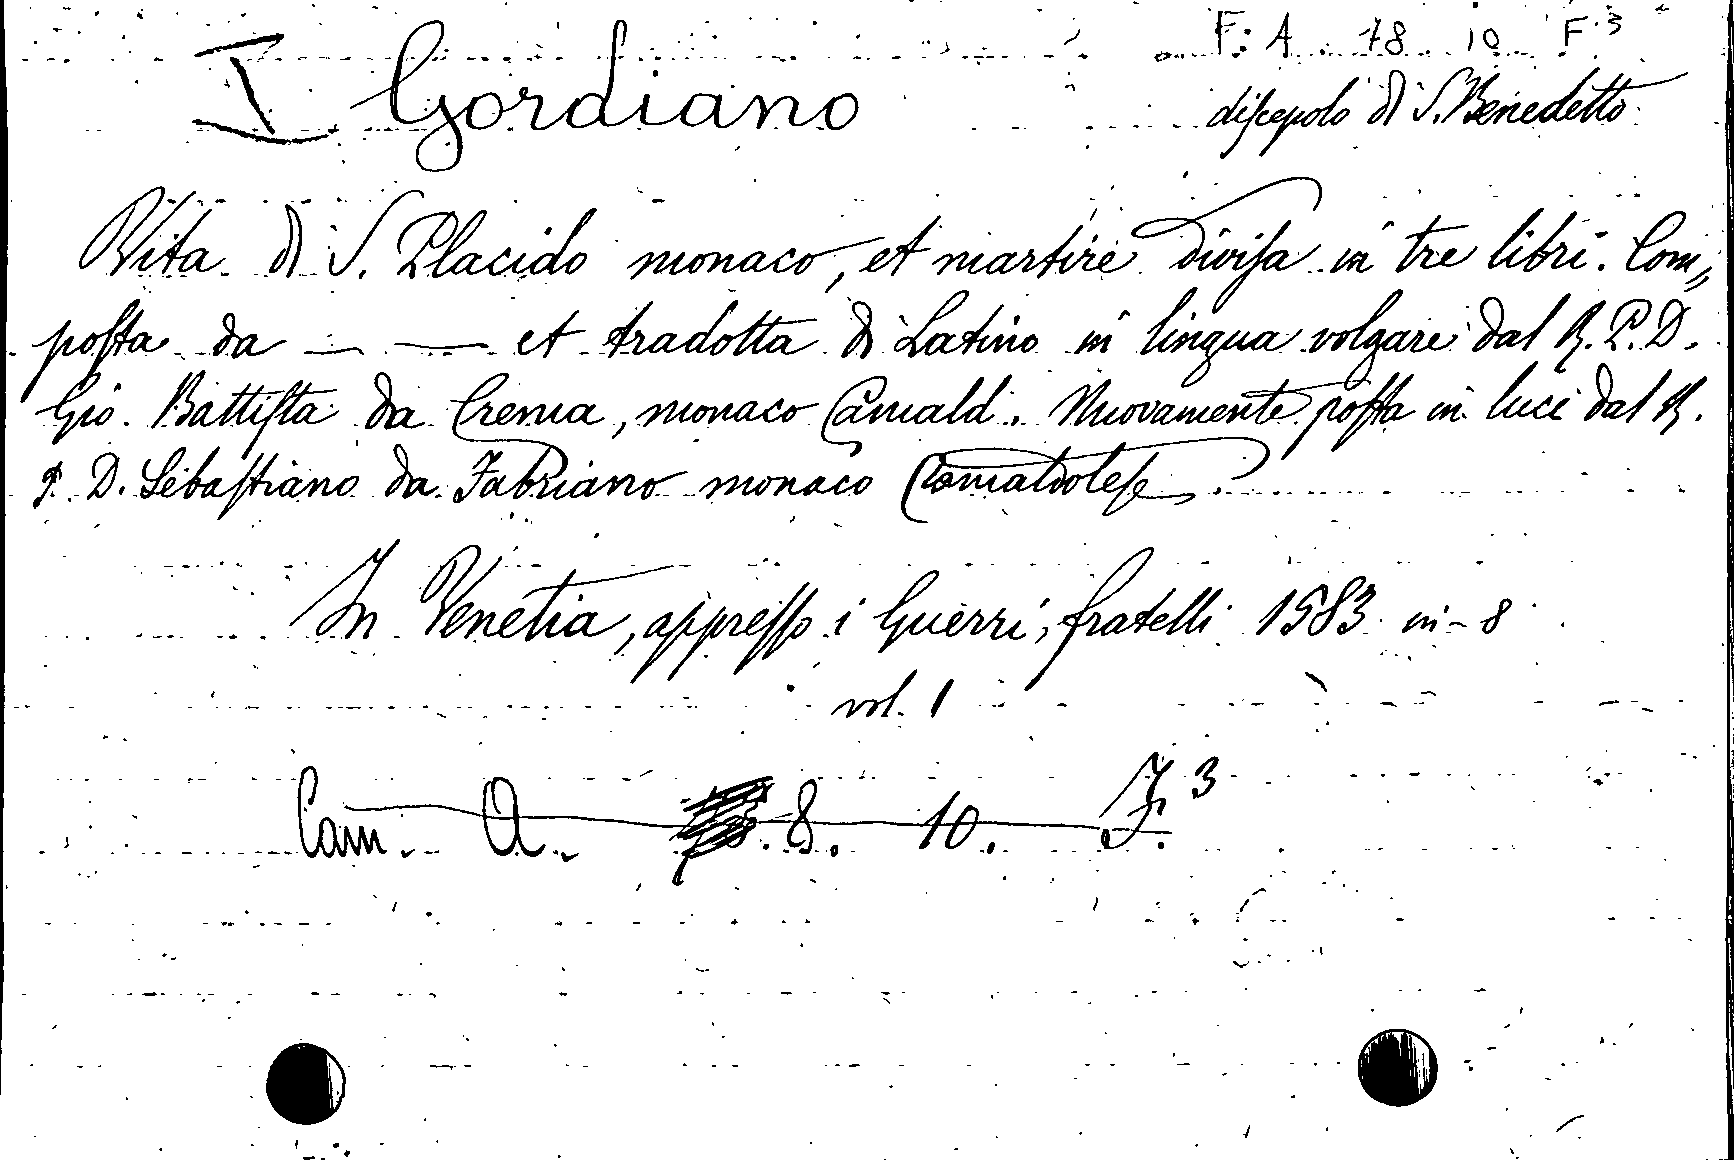 F. A 78 10 F 3
I Gordiano
discepolo di S. Benedetto
Vita di S. Placido monaco, et martire divisa in tre libri. Com„
posta da — — et tradotta di Latino in lingua volgare dal R. P. D.
Gio. Battista da Crema, monaco Camald. Nuovamente posta in luce dal R.
P. D. Sebastiano da Fabriano monaco Camaldolese
In Venetia, appresso i Guerri, fratelli 1583 in-8
vol. 1
Cam. A. 8. 10. F. 3